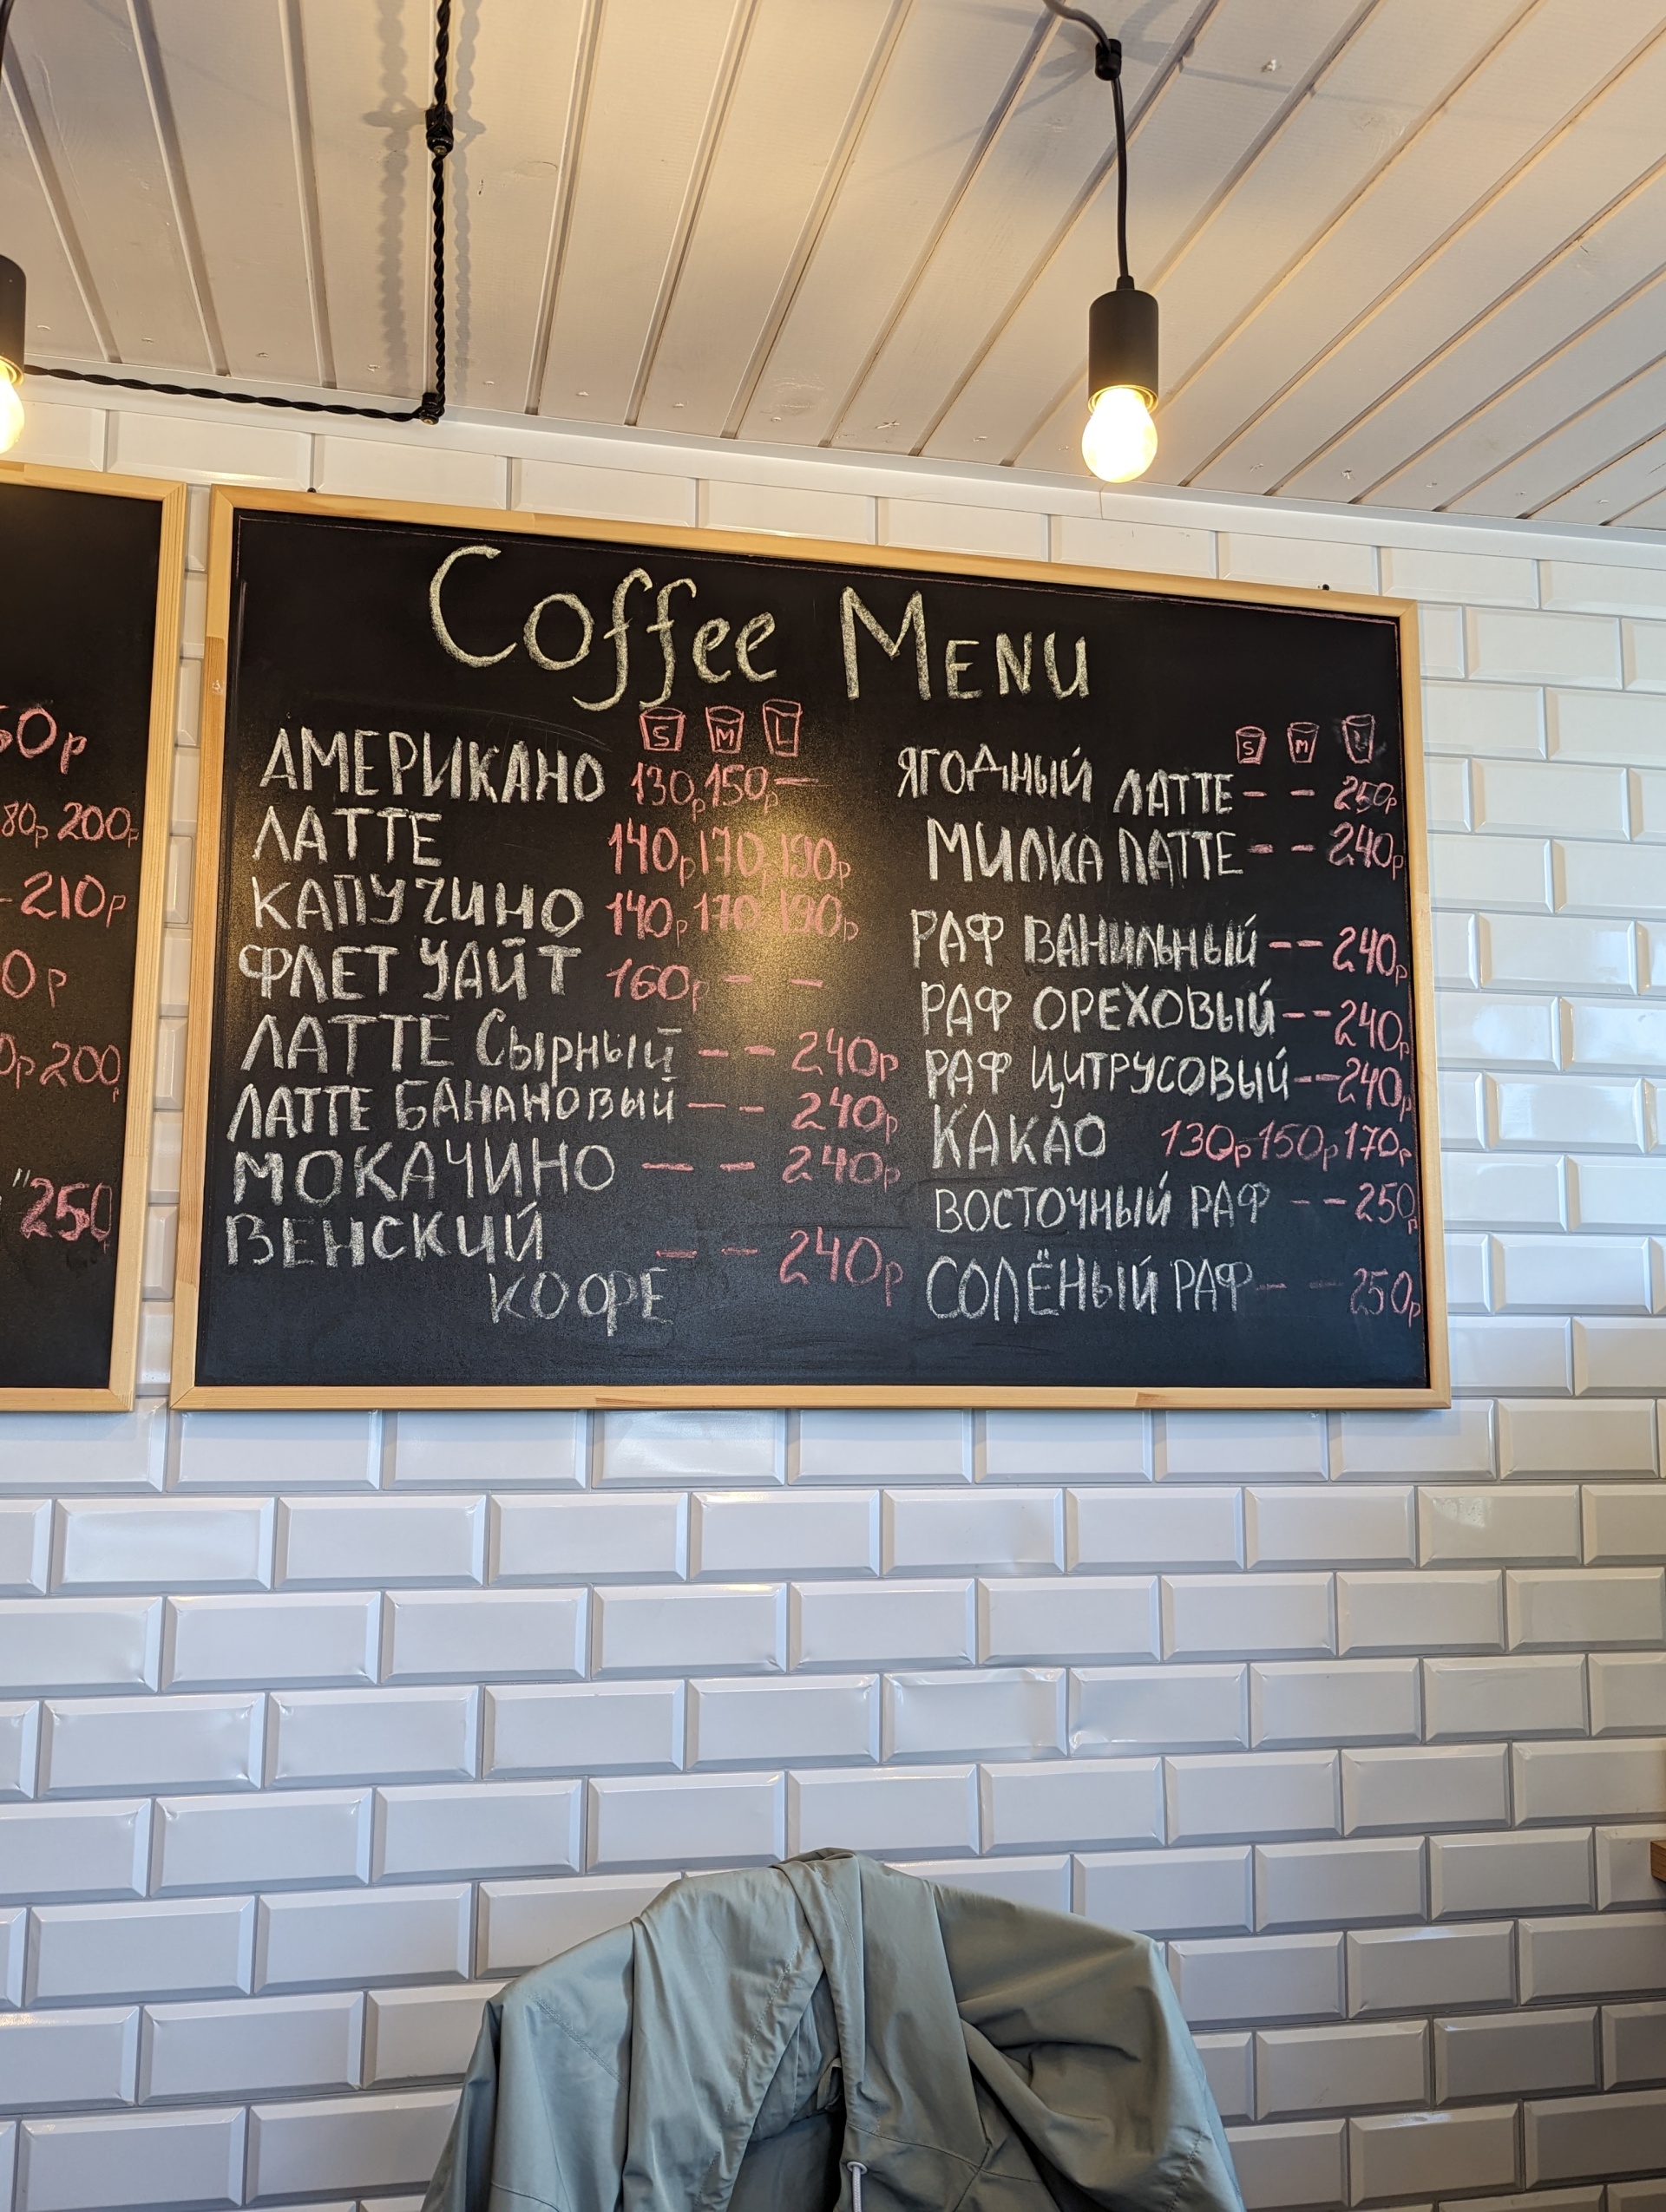 Coffee MENU
S M L
АМЕРИКАНО 130р 150р —
ЛАТТЕ 140р 170р 190р
КАПУЧИНО 140р 170 190р
ФЛЕТ УАЙТ 160р — —
ЛАТТЕ Сырный — — 240р
ЛАТТЕ БАНАНОВЫЙ — — 240р
МОКАЧИНО — — 240р
ВЕНСКИЙ
КОФЕ — — 240р
S M L
ЯГОДНЫЙ ЛАТТЕ — — 250р
МИЛКА ЛАТТЕ — — 240р
РАФ ВАНИЛЬНЫЙ — — 240р
РАФ ОРЕХОВЫЙ — — 240р
РАФ ЦИТРУСОВЫЙ — — 240р
КАКАО 130р 150р 170р
ВОСТОЧНЫЙ РАФ — — 250р
СОЛЁНЫЙ РАФ — — 250р
200р
-210р
200р
"250р